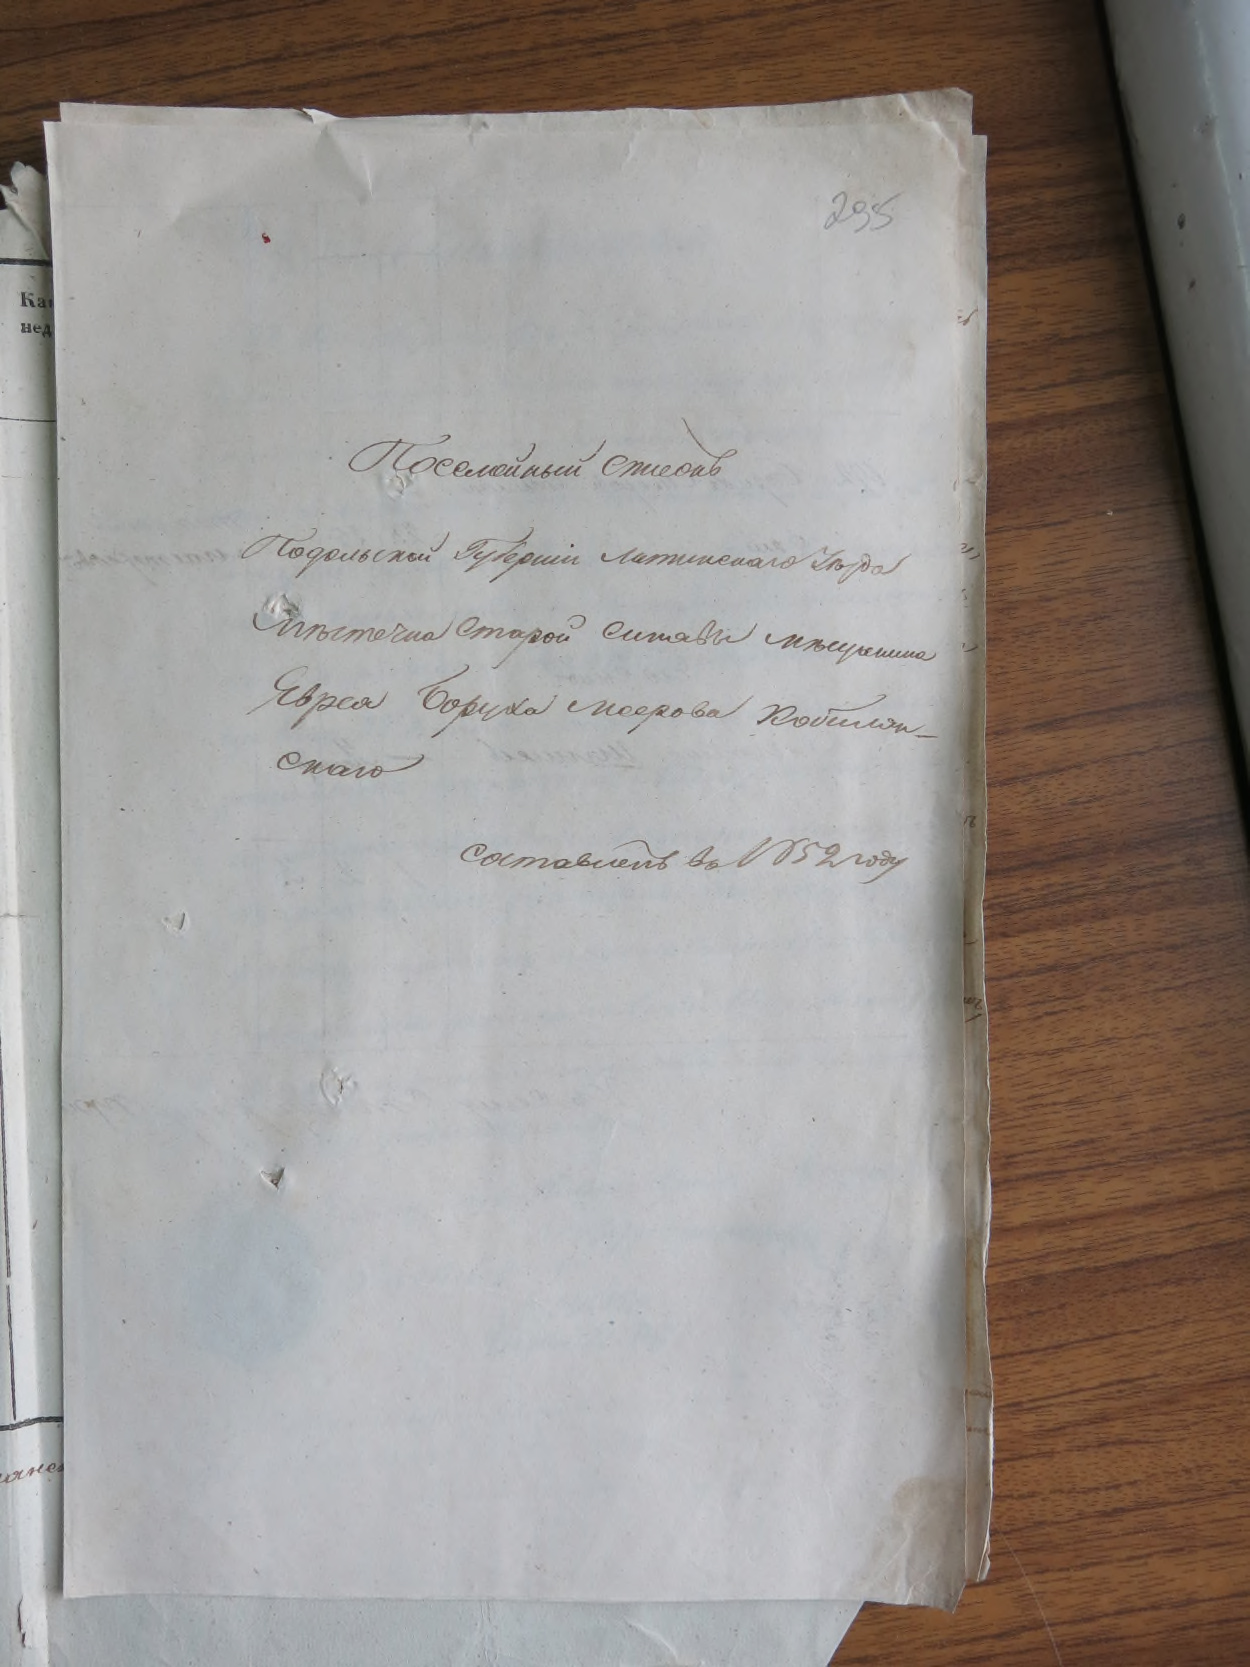 295
Посемейный списокъ
Подольской Губерніи Литинскаго Уѣзда
Мѣстечка Старой Синявы мѣщанина
Еврея Боруха Меерова Кобылян-
скаго
составленъ въ 1852 году
Ка
нед